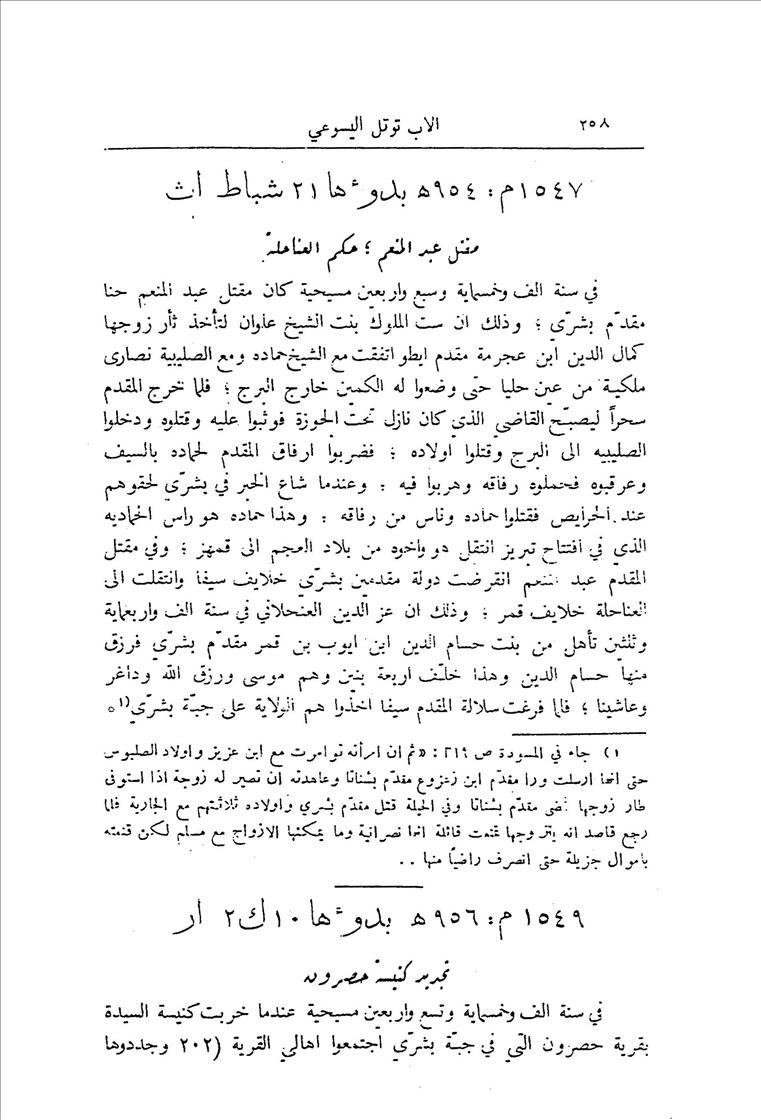 ٢٥٨ الاب توتل اليسوعي
١٥٤٧ م : ٩٥٤ ھ بدوءُها ٢١ شباط اث
مقتل عبد المنعم ؛ حكم العناحلة
في سنة الف وخمسماية وسبع واربعين مسيحية كان مقتل عبد المنعم حنا
مقدّم بشرّي ؛ وذلك ان ست الملوك بنت الشيخ علوان لتأخذ ثأر زوجها
كمال الدين ابن عجرمة مقدم ايطو اتفقت مع الشيخ حماده ومع الصليبية نصارى
ملكية من عين حليا حتى وضعوا له الكمين خارج البرج ؛ فلما خرج المقدم
سحراً ليصبّح القاضي الذي كان نازل تحت الحوزة فوثبوا عليه وقتلوه ودخلوا
الصليبيه الى البرج وقتلوا اولاده ؛ فضربوا ارفاق المقدم لحماده بالسيف
وعرقبوه فحملوه رفاقه وهربوا فيه ؛ وعندما شاع الخبر في بشرّي لحقوهم
عند الحرايص فقتلوا حماده وناس من رفاقه ؛ وهذا حماده هو راس الحماديه
الذي في افتتاح تبريز انتقل هو واخوه من بلاد العجم الى قمهز ؛ وفي مقتل
المقدم عبد المنعم انقرضت دولة مقدمين بشرّي خلايف سيفا وانتقلت الى
العناحلة خلايف قمر ؛ وذلك ان عز الدين العنحلاني في سنة الف واربعماية
وثلثين تأهل من بنت حسام الدين ابن ايوب بن قمر مقدّم بشرّي فرزق
منها حسام الدين وهذا خلّف اربعة بنين وهم موسى ورزق الله وداغر
وعاشينا ؛ فلما فرغت سلالة المقدم سيفا اخذوا هم الولاية على جبّة بشرّي (١ *
١) جاء في المسودة ص ٢١٩ : « ثم ان امرأته توامرت مع ابن عزيز واولاد الصلبوس
حتى انها ارسلت ورا مقدّم ابن زعزوع مقدّم بشناتا وعاهدته ان تصير له زوجة اذا استوفى
طار زوجها فمضى مقدّم بشناتا وفي الحيلة قتل مقدّم بشري واولاده ثلاثتهم مع الجارية فلما
رجع قاصد انه يتزوجها تمنعت قائلة انها نصرانية وما يمكنها الازواج مع مسلم لكن قنعته
باموال جزيلة حتى انصرف راضيًا منها ..
١٥٤٩ م : ٩٥٦ ھ بدوءُها ١٠ ك ٢ ار
تجديد كنيسة حصرون
في سنة الف وخمسماية وتسع واربعين مسيحية عندما خربت كنيسة السيدة
بقرية حصرون التي في جبّة بشرّي اجتمعوا اهالي القرية (٢٠٢ وجددوها